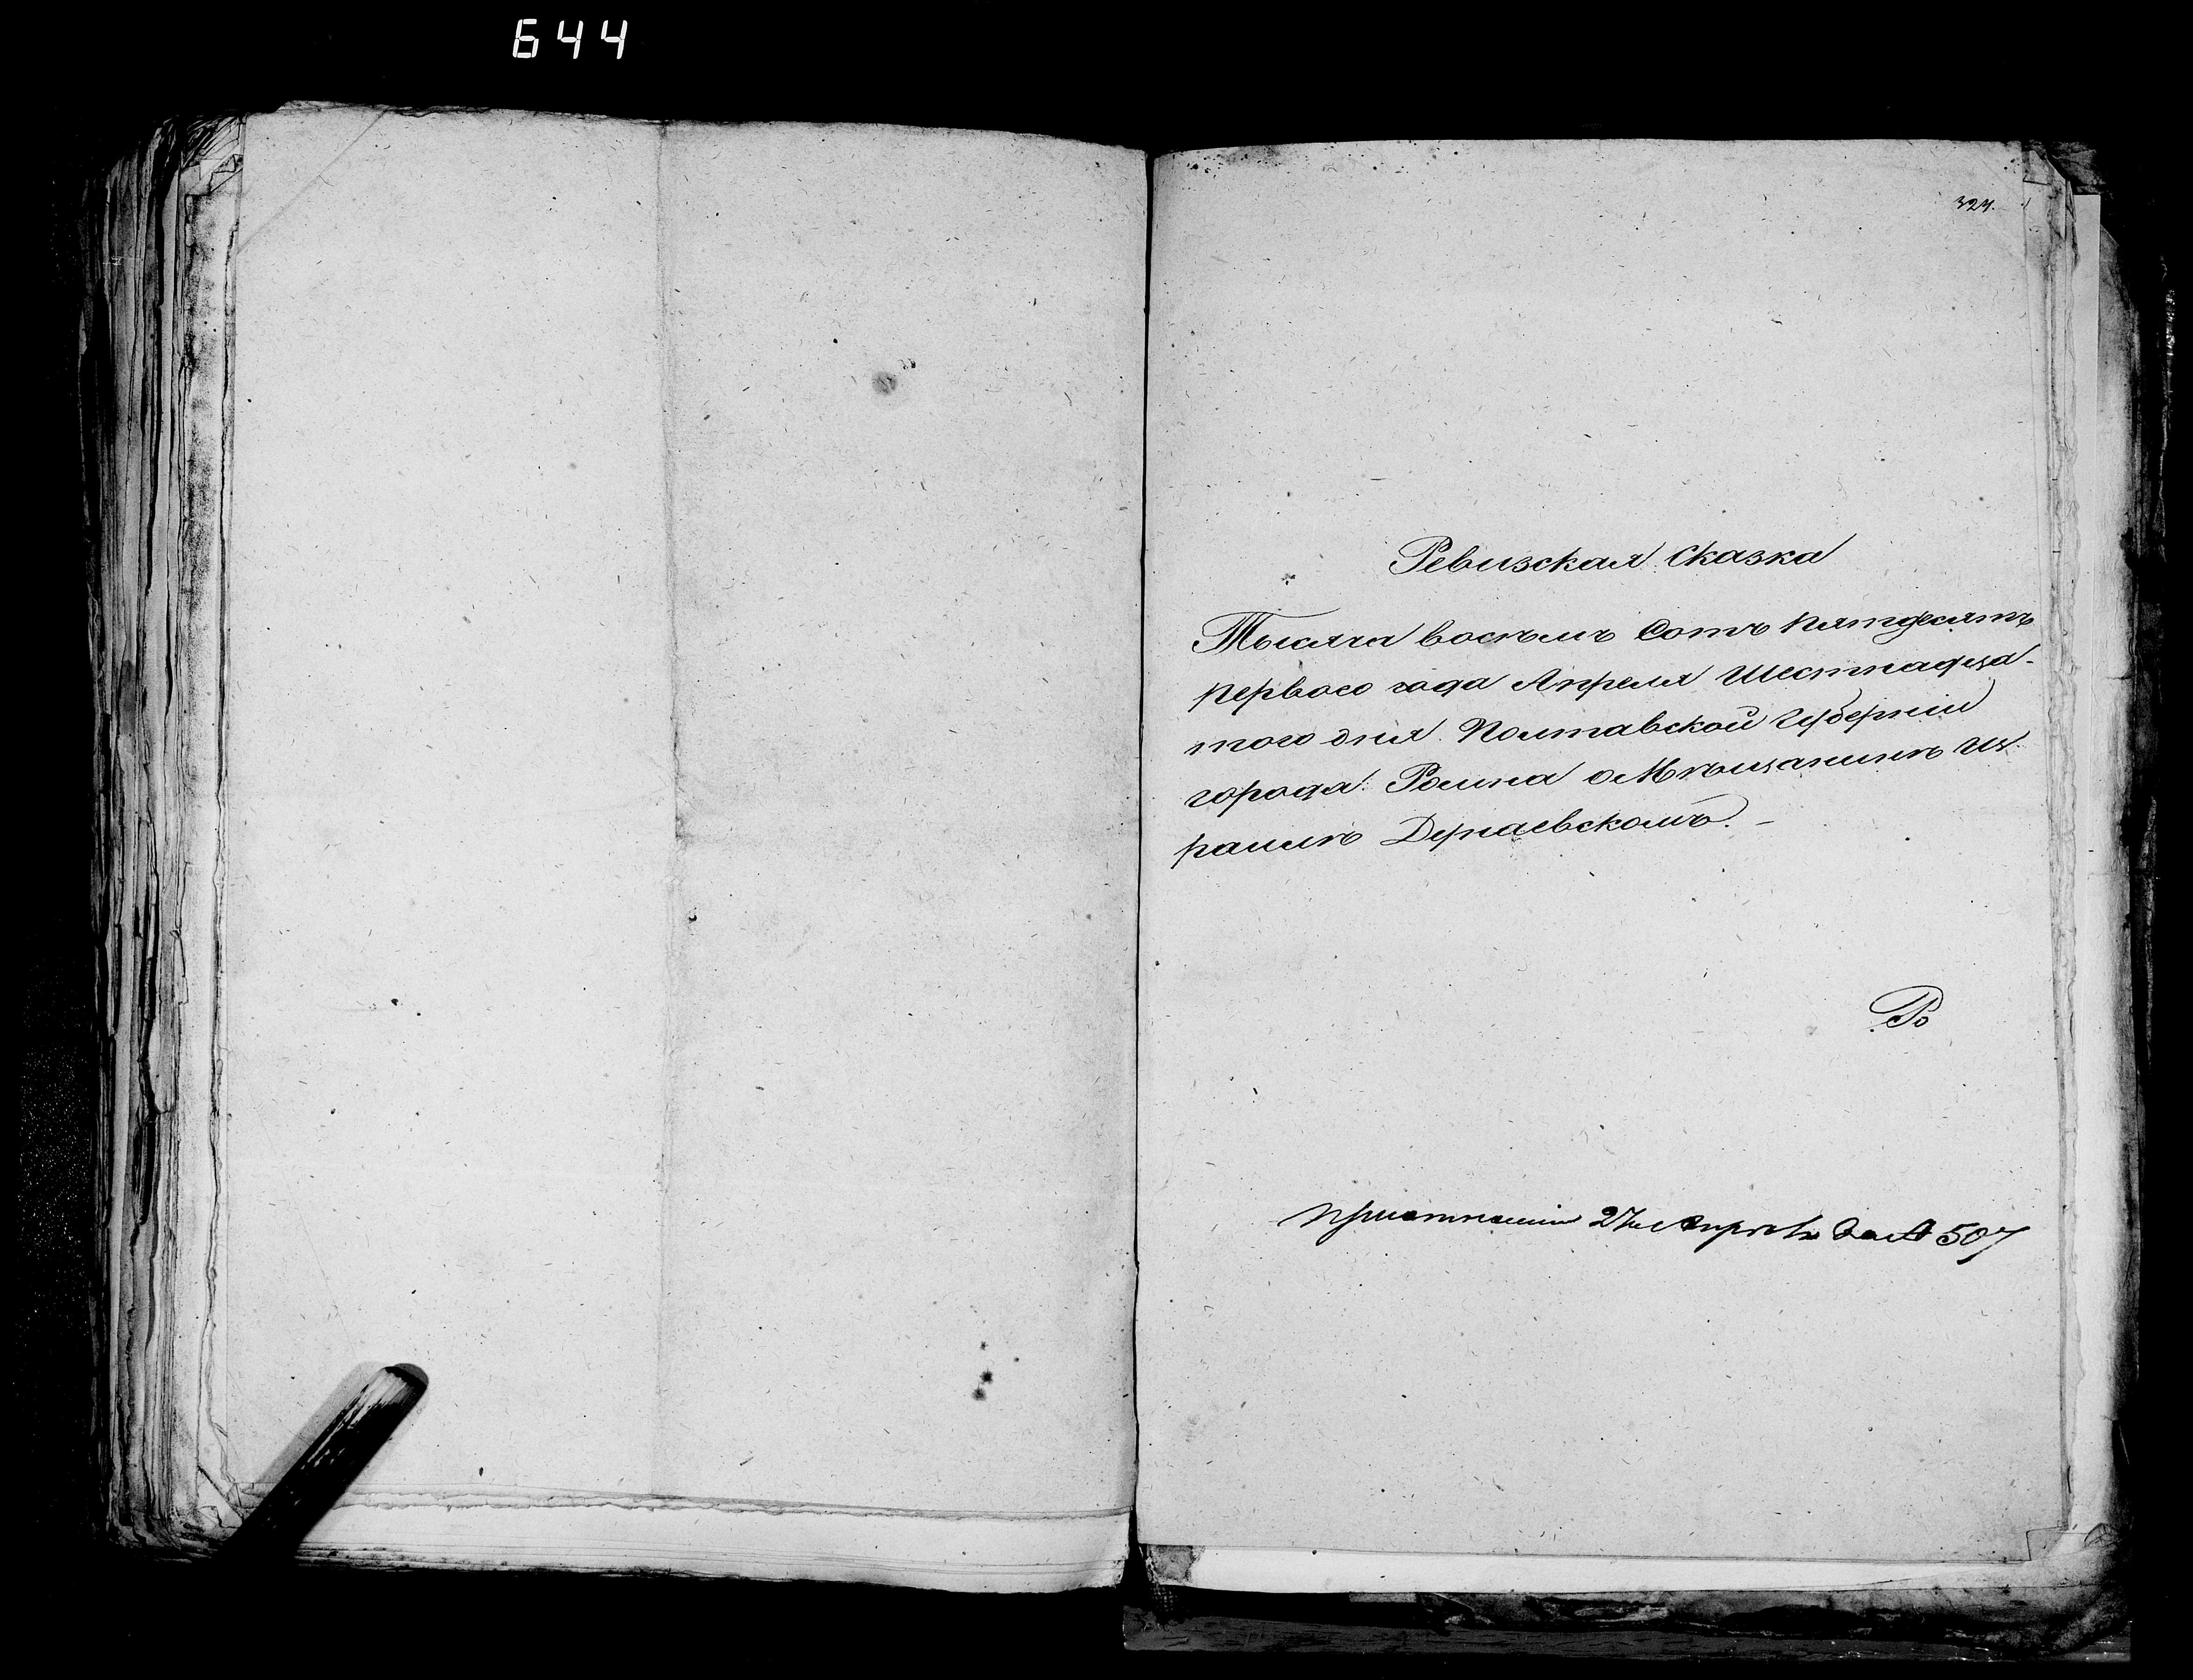 644
324.
Ревизская Сказка
Тысяча восѣмъ Сотъ Пятдесятъ
первого года Апреля Шестнадца-
того дня Полтавской Губерніи
города Ромна о Мѣщанинѣ Из
раилѣ Дунаевскомъ. —
Ро
27 Апрѣля 507